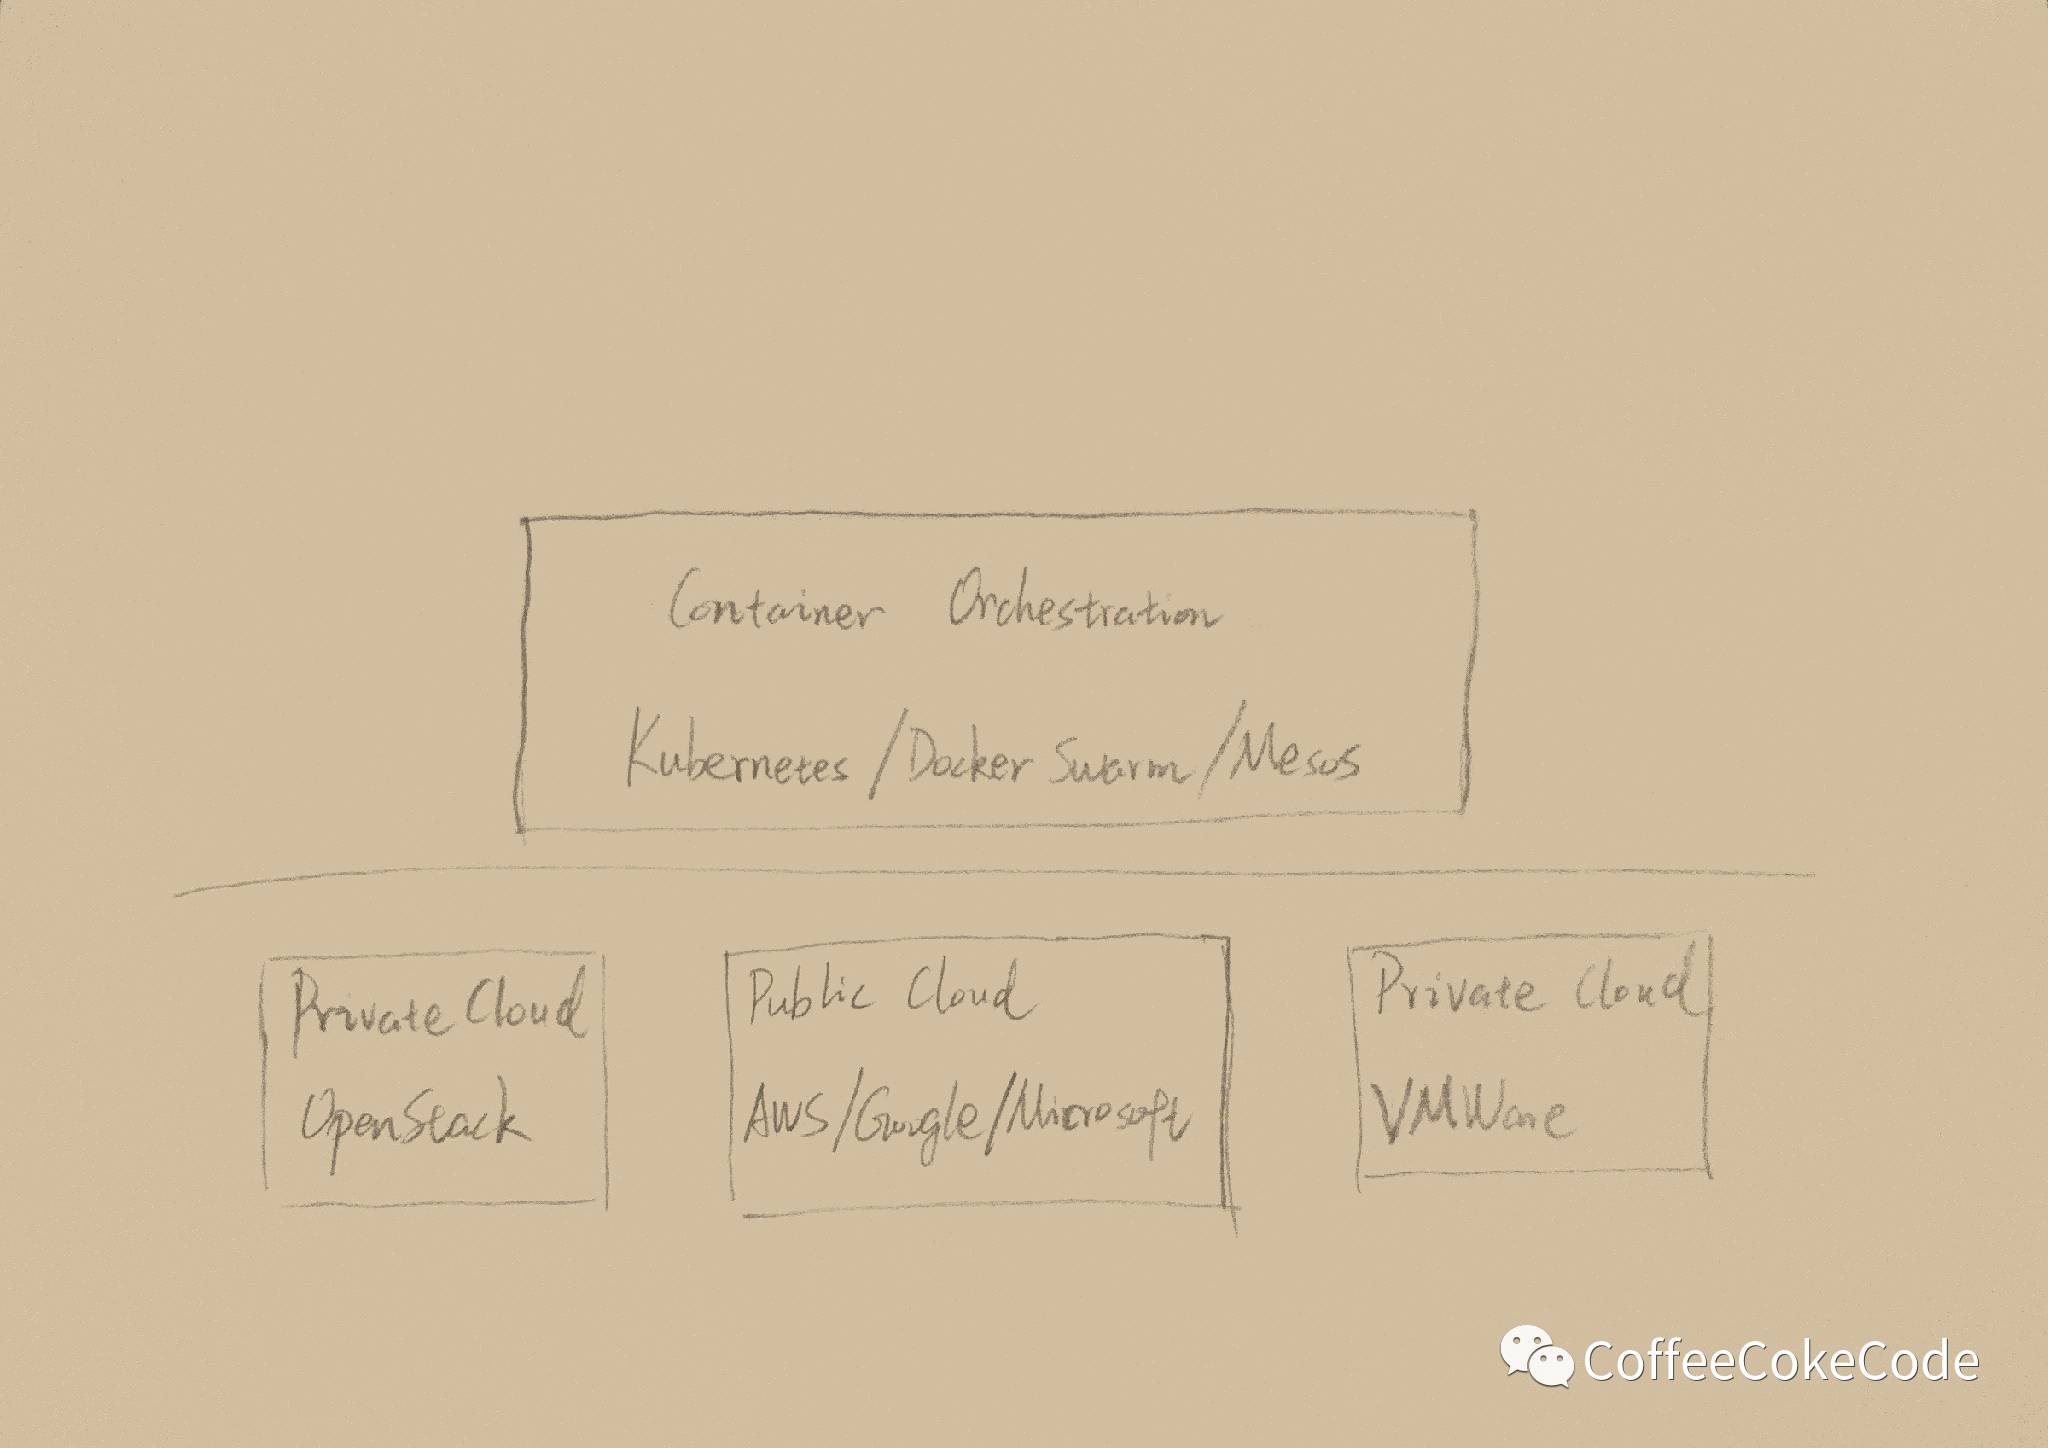 Container Orchestration
Kubernetes /Docker Swarm/Mesos
Private Cloud
OpenStack
Public Cloud
AWS/Google/Microsoft
Private Cloud
VMWare
CoffeeCokeCode